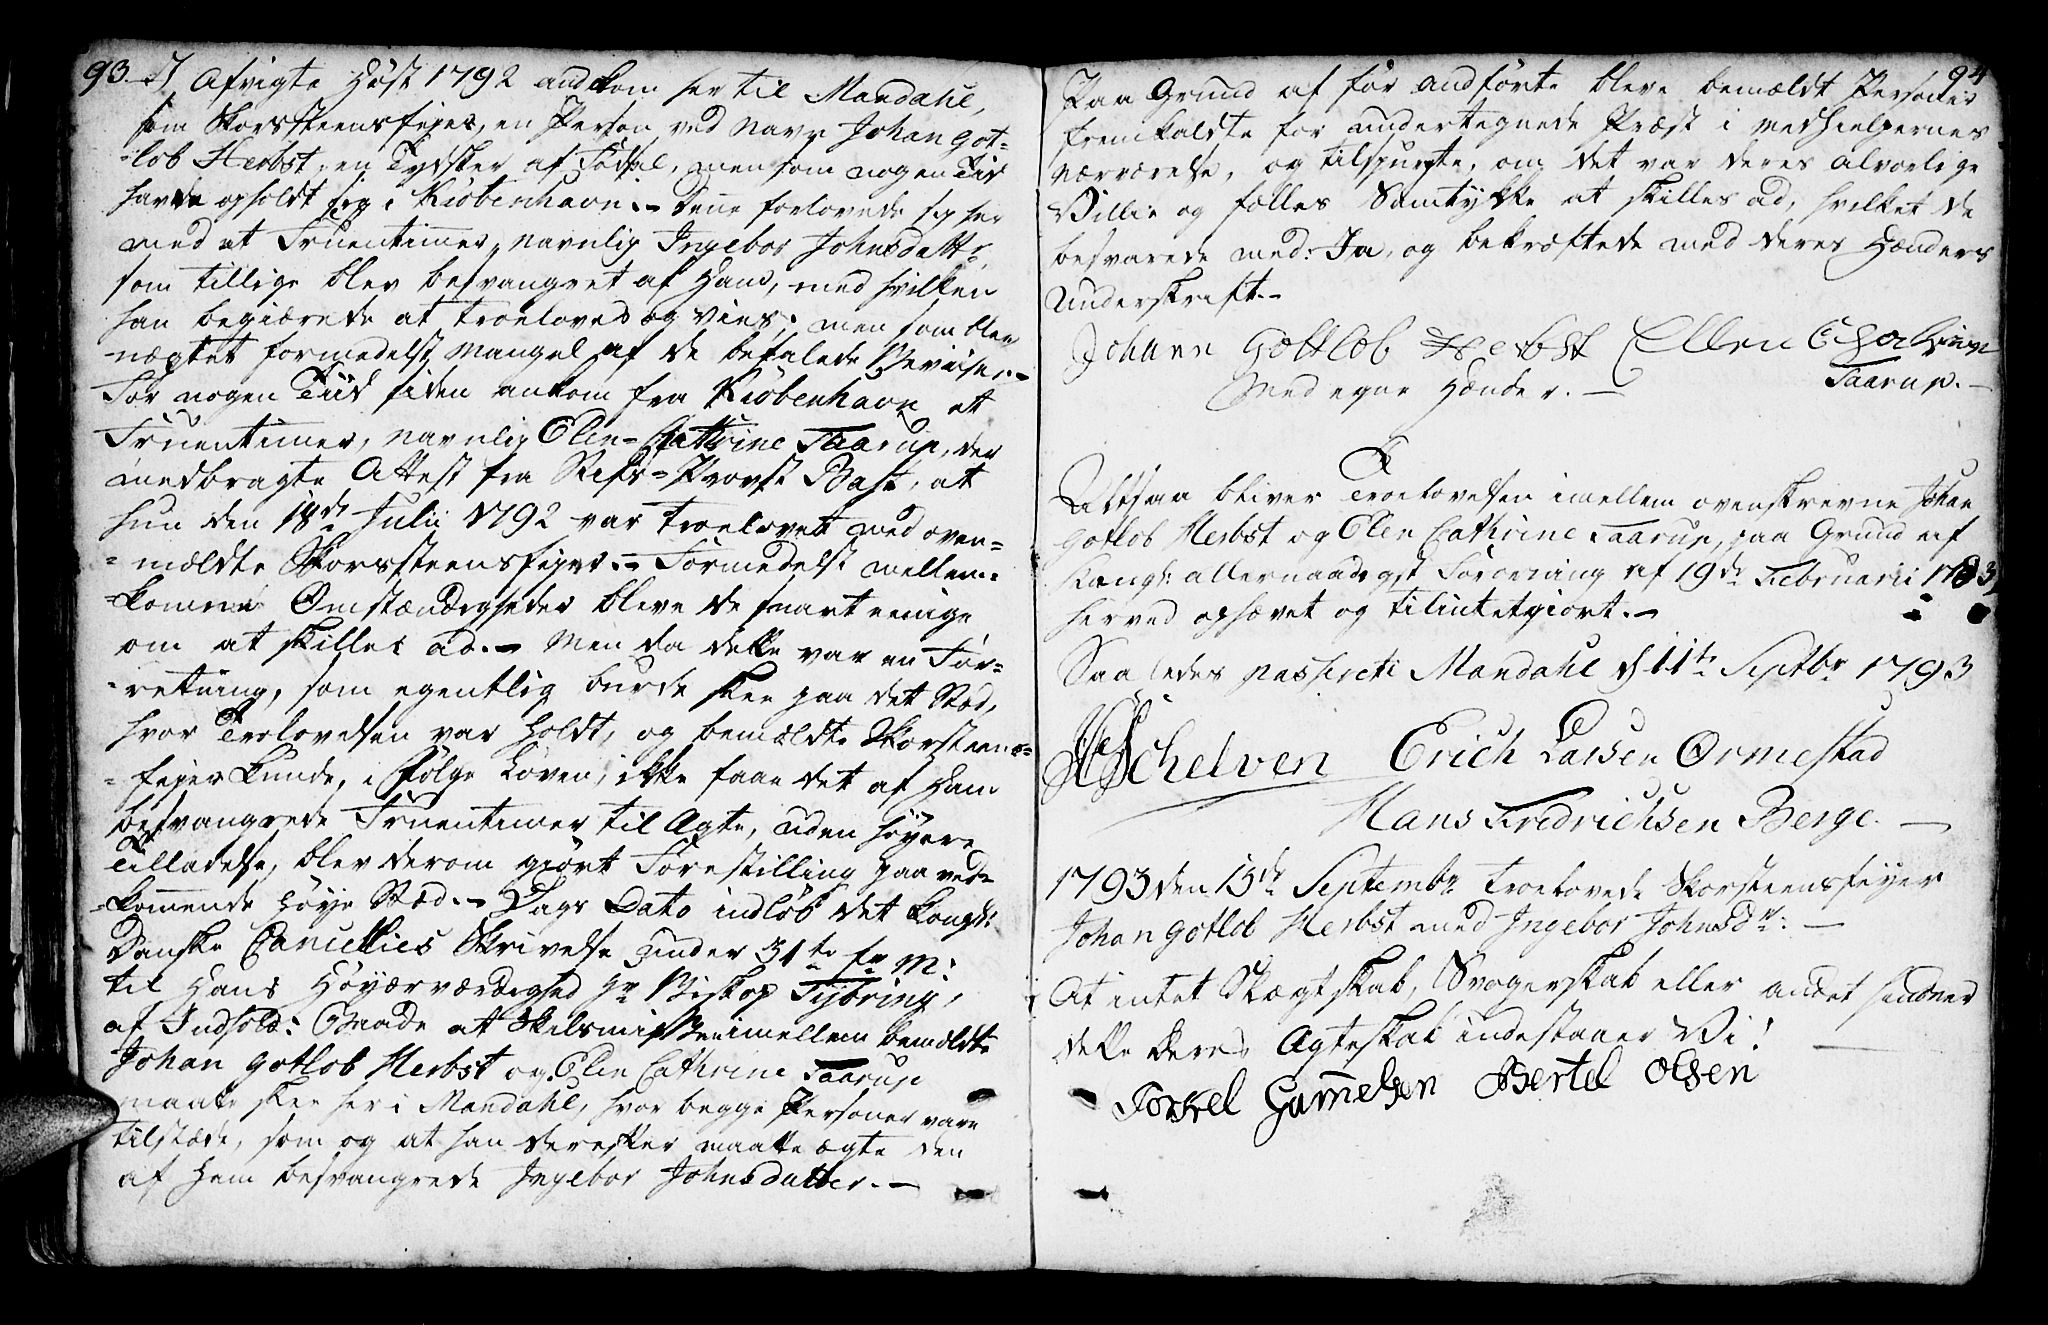 93. I Afvigte Høst 1792 andkom her til Mandahl,
som Skorsteensfejer, en Person ved Navn Johan Got=
=lob Herbst, en Tydsker af Fødsel, men som nogen Tid
havde opholdt sig i Kiøbenhavn.- Denne forlovede sig her
med et Fruentimer, navnlig Ingebor Johnsdattr,
som tillige blev besvangret af Ham, med hvilken
han begiærede at troeloves og vies; men som blev
nægtet formedelst Mangel af de befalede Beviiser.-
For nogen Tiid siden ankom fra Kiøbenhavn et
Fruentimer, navnlig Elen Cathrine Taarup, der
medbragte Attest fra Stifts=Provst Bast, at
hun den 18de Julii 1792 var troelovet med oven=
=mældte Skorssteensfejer.- Formedelst mellem=
=komne Omstændigheder bleve de snart enige
om at skilles ad.- Men da dette var en For=
=retning, som egentlig burde skee paa det Stæd,
hvor Trolovelsen var holdt, og bemældte Skorsteens=
=fejer kunde, i Følge Loven, ikke faae det af Ham
besvangrede Fruentimer til Ægte, uden høyere
Tilladelse, blev derom giort Forestilling paa ved=
=kommende høye Stæd.- Dags Dato indløb det Kongl:
Danske Cancellies Skrivelse under 31te f. M:
til Hans Høyærværdighed Hr Biskop Tybring,
af Indhold: At Skilsmissen imellem bemældte
Johan Gotlob Herbst og Elen Cathrine Taarup
maatte skee her i Mandahl, hvor begge Personer vare
tilstæde, som og at han derefter maatte ægte den
af ham besvangrede Ingebor Johnsdatter.-
94
Paa Grund af før anførte bleve bemældte Personer
fremkaldte for undertegnede Præst i Medhielpernes
Nærværelse, og tilspurgte, om det var deres alvorlige
Villie og fælles Samtykke at skilles ad, hvilket de
besvarede med: Ja, og bekræftede med deres Hænders
Underskrift.-
Johann Gottlob Herbst Ellen Chatrine
Taarup.-
Med egne Hænder.-
Altsaa bliver Troelovelsen imellem ovenskrevne Johan
Gotlob Herbst og Elen Cathrine Taarup, paa Grund af
Kongl: allernaadigst Forordning af 19de Februarii 1783,
herved ophævet og tilintetgiort.-
Saaledes passeret i Mandahl d 11te Septbr 1793
Schelven Erich Larsen Ormestad
Hans Fredrichsen Berge.
1793 den 15de Septembr troelovede Skorsteensfeyer
Johan Gotlob Herbst med Ingebor Johnsdr:-
At intet Slægtskab, Svogerskab eller andet hindrer
dette Deres Ægteskab indestaaer Vi!
Torkel Gumelsen Bertel Olsen